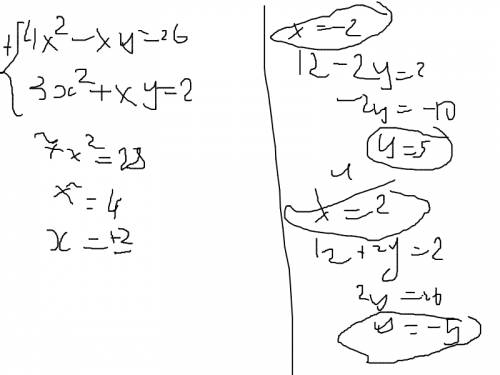 + { 4x² - xy = 26
3x² + xy = 2
7x² = 28
x² = 4
x = ±2
x = -2
12 - 2y = 2
-2y = -10
y = 5
x = 2
12 + 2y = 2
y = -5